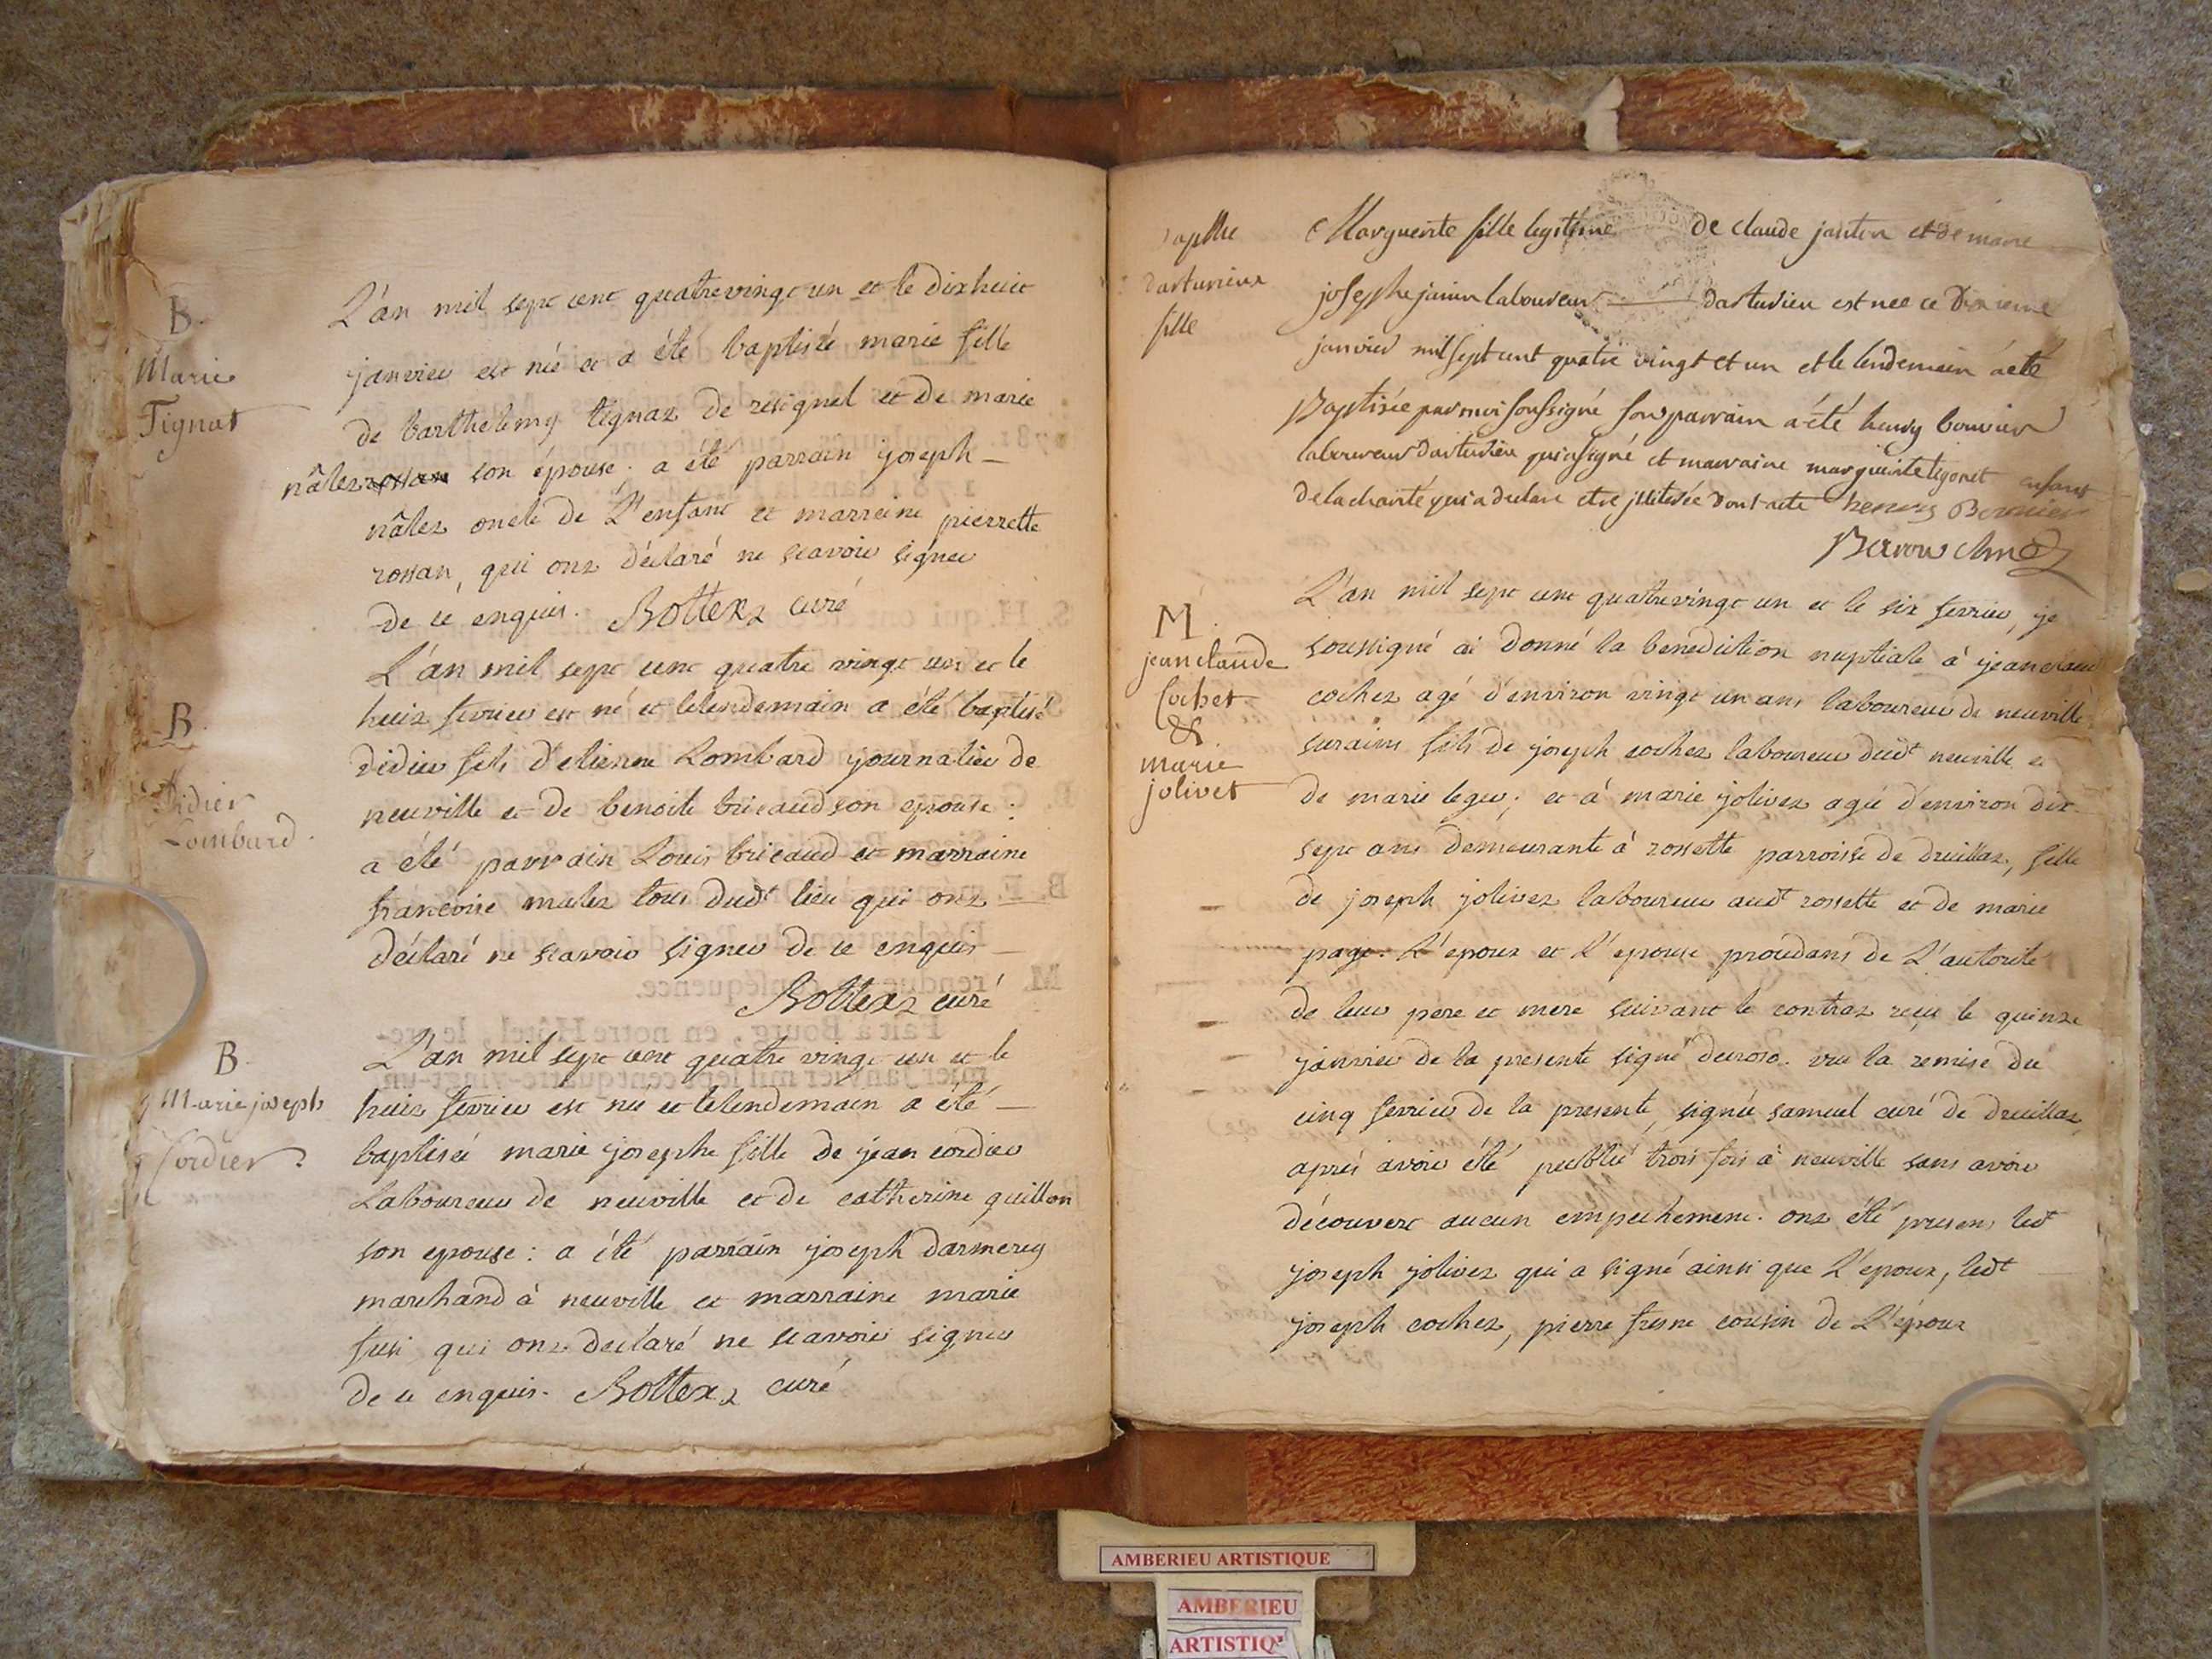 B.
Marie
Tignat
L'an mil sept cent quatrevingt un et le dixhuit
janvier est née et a été baptisée marie fille
de barthelemy tignat de resignel et de marie
nâlet son épouse. a été parrain joseph
nâlet oncle de L'enfant et marreine pierrette
rossan, qui ont déclaré ne scavoir signer
de ce enquis. Bottex curé
B.
Didier
Lombard.
L'an mil sept cent quatre vingt un et le
huit fevrier est né et le lendemain a été baptisé
didier fils d'etienne Lombard journalier de
neuville et de benoite bricaud son epouse.
a été parrain Louis bricaud et marraine
francoise mulet tous dudt lieu qui ont
déclaré ne scavoir signer de ce enquis
Bottex curé
B.
Marie joseph
Cordier.
L'an mil sept cent quatre vingt un et le
huit fevrier est née et le lendemain a été
baptisée marie josephe fille de jean cordier
Laboureur de neuville et de catherine guillon
son epouse: a été parrain joseph darmerey
marchand à neuville et marraine marie
qui ont declaré ne scavoir signer
de ce enquis. Bottex curé
fille
Marguerite fille legitime de claude jantin et de marie
josephe janin laboureur dasturieu est née ce dixieme
janvier mil sept cent quatre vingt et un et le lendemain a été
Baptisée par moi soussigné son parrain a été henry bouvier
laboureur dasturieu qui a signé et marraine marguerite tigonet enfant
de la charité qui a declaré etre illiterée dont acte henry Bouvier
M.
jean claude
Cochet
&
marie
jolivet
L'an mil sept cent quatrevingt un et le six fevrier, je
soussigné ai donné la benediction nuptiale à jean claude
cochet agé d'environ vingt un ans laboureur de neuville
surains fils de joseph cochet laboureur dudt neuville et
de marie leger; et à marie jolivet agée d'environ dix
sept ans demeurante à rossette parroisse de druillat, fille
de joseph jolivet laboureur audt rossette et de marie
page. L'epoux et L'epouse procedans de L'autorité
de leur pere et mere suivant le contrat reçu le quinze
janvier de la presente signé duroso. vu la remise du
cinq fevrier de la presente, signée samuel curé de druillat
après avoir été publié trois fois à neuville sans avoir
découvert aucun empechement. ont été presens ledt
joseph jolivet qui a signé ainsi que L'epoux, ledt
joseph cochet, pierre fresne cousin de L'époux
AMBERIEU ARTISTIQUE
AMBERIEU
ARTISTIQ